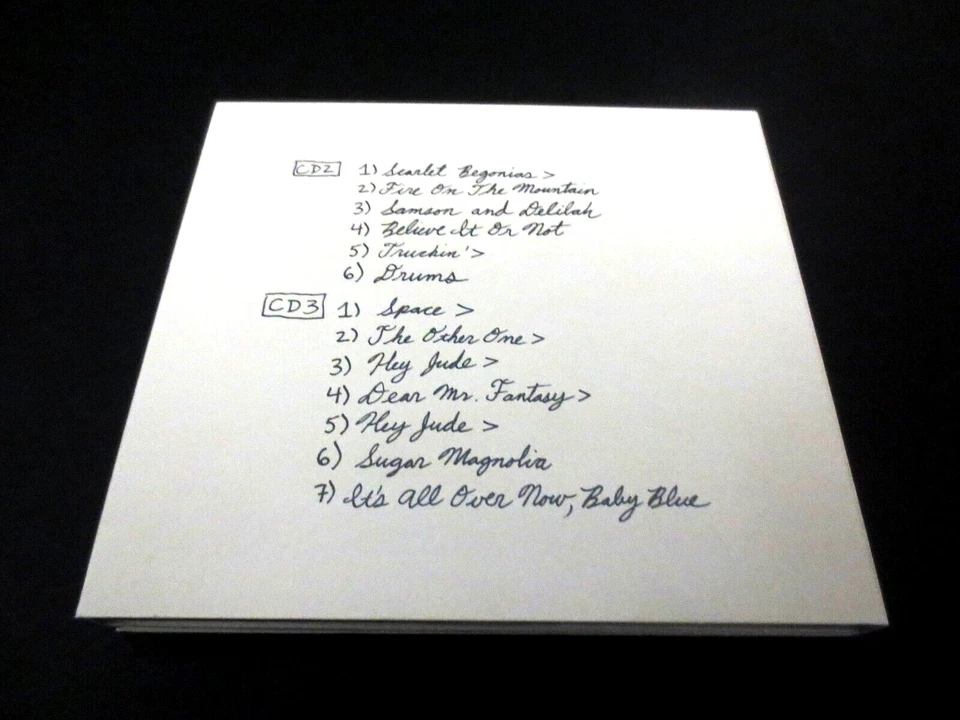 CD2 1) Scarlet Begonias >
2) Fire On The Mountain
3) Samson and Delilah
4) Believe It Or Not
5) Truckin' >
6) Drums
CD3 1) Space >
2) The Other One >
3) Hey Jude >
4) Dear Mr. Fantasy >
5) Hey Jude >
6) Sugar Magnolia
7) It's All Over Now, Baby Blue